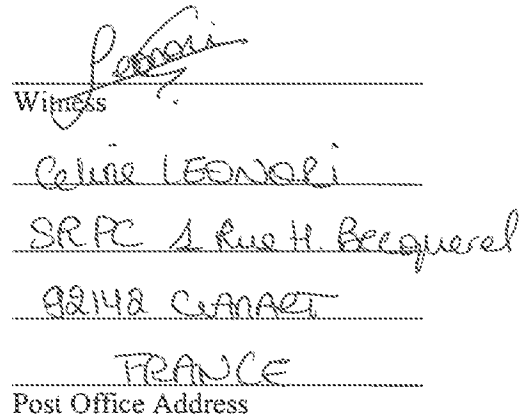 Leonari
Witness
Celine LEONARI
SRPC 1 Rue H. Becquerel
92142 CLAMART
FRANCE
Post Office Address